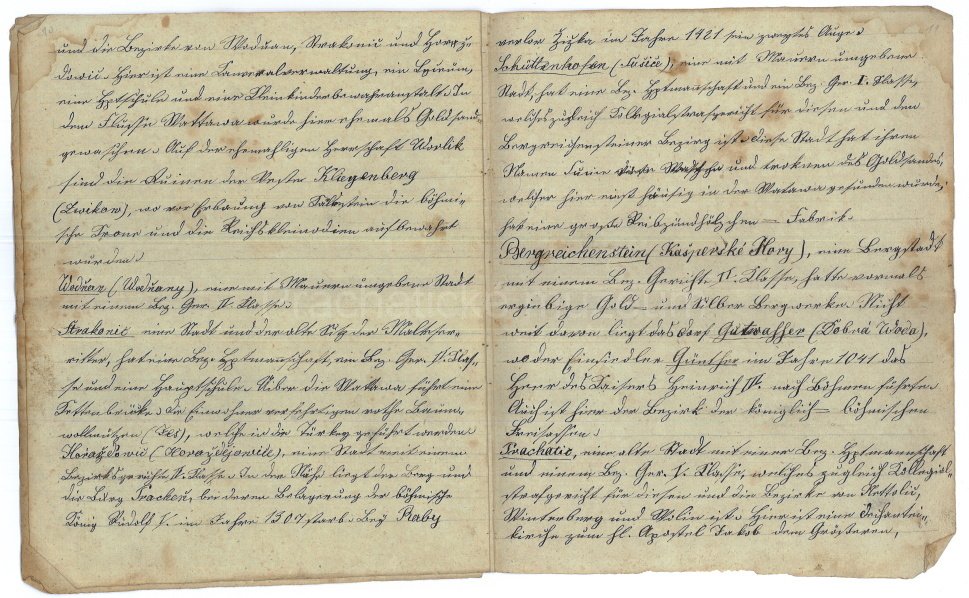 und die Bezirke von Woduan, Strakonic und Horaz-
dovic. Hier ist eine Cameralverwaltung, ein Lyceum,
eine Hptschule und eine Kleinkinderbewahranstalt. In
dem Flusse Wattawa wurde hier ehemals Goldsand
gewaschen. Auf der ehemahligen Herrschaft Worlik
sind die Ruinen der Veste Klingenberg
(Zwikow), wo vor Erbauung von Karlstein die böhmi-
sche Krone und die Reichskleinodien aufbewahrt
wurden.
Wodnan (Wodňany), eine mit Mauern umgebene Stadt
mit einem Bez. Ger. II. Klasse.
Strakonic eine Stadt und der alte Sitz der Malteser-
ritter, hat eine Bez. Hptmannschaft, ein Bez. Ger. II. Klas-
se und eine Hauptschule. Über die Wattawa führt eine
Kettenbrücke. Die Einwohner verfertigen rothe Baum-
wollmützen (Fes), welche in die Türkey geführt werden.
Horaždovic (Horazdjowice), eine Stadt mit einem
Bezirksgerichte II. Klasse. In der Nähe liegt der Berg und
die Burg Prachen, bei deren Belagerung der böhmische
König Rudolf I. im Jahre 1307 starb. Bey Raby
verlor Žižka im Jahre 1421 sein zweytes Auge.
Schüttenhofen (Sušice), eine mit Mauern umgebene
Stadt, hat eine Bez. Hptmannschaft und ein Bez. Ger. I. Klasse,
welches zugleich Kollegialstrafgericht für diesen und den
Bergreichensteiner Bezirg ist. Diese Stadt hat ihren
Namen Sušice vom Waschen und troknen des Goldsandes,
welcher hier einst häufig in der Watawa gefunden wurde,
hat eine große Reibzündhölzchen = Fabrik.
Bergreichenstein (Kašperské Hory), eine Bergstadt
mit einem Bez. Gericht II. Klasse, hatte vormals
ergiebige Gold- und Silber Bergwerke. Nicht
weit davon liegt das Dorf Gutwasser (Dobrá Woda),
wo der Einsiedler Günther im Jahre 1041 das
Heer des Kaisers Heinrich IV. nach Böhmen führte.
Auch ist hier der Bezirk der königlich = böhmischen
Freisassen.
Prachatic, eine alte Stadt mit einer Bez. Hptmannschaft
und einem Bez. Ger. I. Klasse, welches zugleich Kollegial-
strafgericht für diesen und die Bezirke von Nettolic,
Winterberg und Wolin ist. Hier ist eine Dechantei-
kirche zum hl. Apostel Jakob dem Größeren,